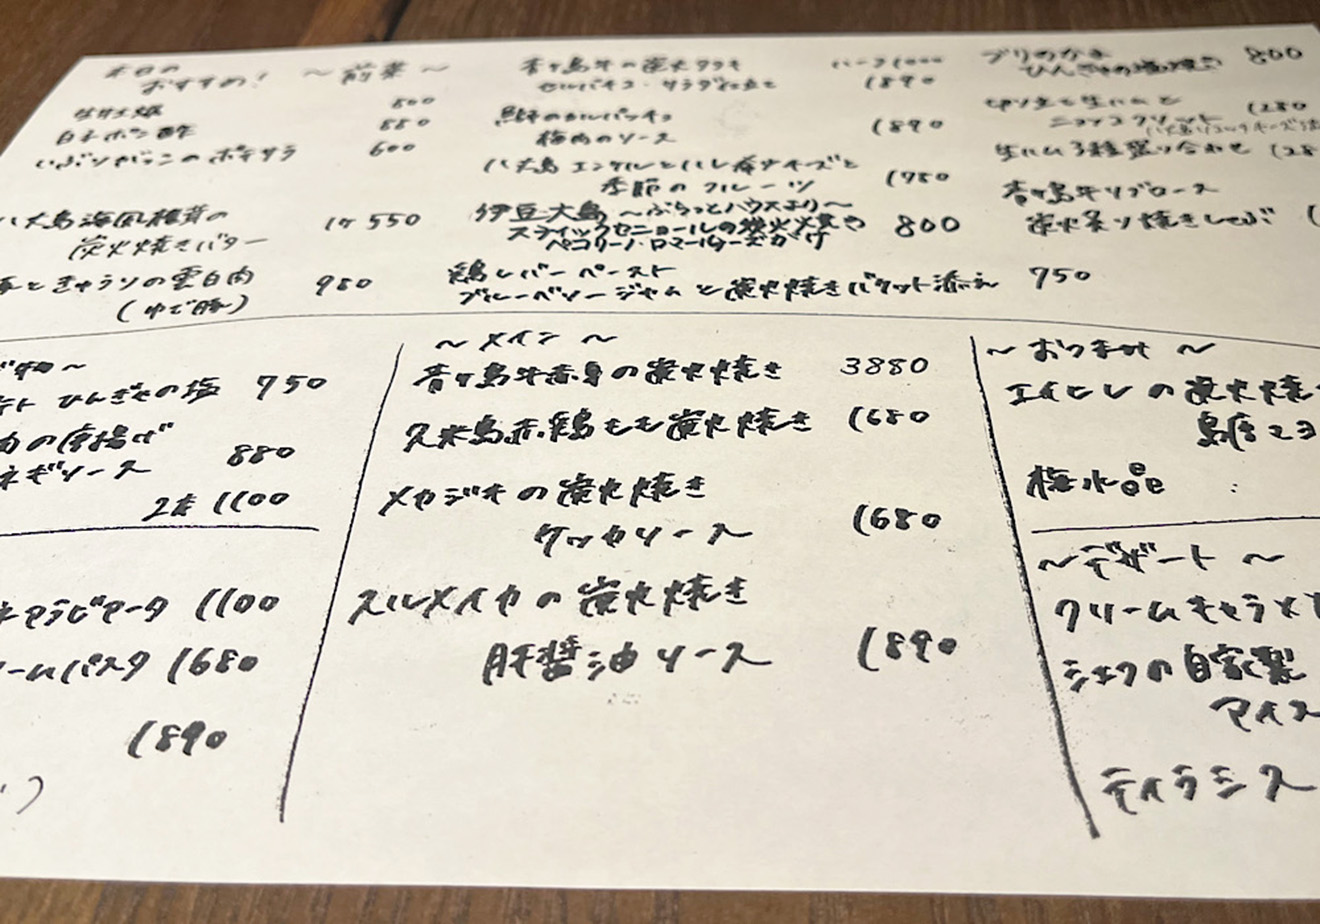 本日の
おすすめ！ 〜前菜〜
生牡蠣 800
白子ポン酢 880
いぶりがっこのポテサラ 600
八丈島海風椎茸の 1ケ 550
炭火焼きバター
ときゅうりの雲白肉 980
(ゆで豚)
青ヶ島牛の炭火タタキ ハーフ1000
セルバチコ・サラダ仕立て 1890
鮮魚のカルパッチョ 1890
梅肉のソース
八丈島 エンケルとハレ 季節のフルーツ 1780
伊豆大島 〜ぶらっとハウスより〜
スティックセニョールの炭火焼き 800
ペコリーノ・ロマーノチーズがけ
鶏レバーペースト
ブルーベリージャムと炭火焼きバケット添え 750
ブリのかま 800
ひんぎゃの塩焼き
生ハムと 1280
生ハム3種盛り合わせ 128
青ヶ島牛リブロース
炭火炙り焼きしゃぶ
物〜
テト ひんぎゃの塩 750
肉の唐揚げ
ネギソース 880
2本 1100
アラビアータ 1100
ームパスタ 1680
1890
〜メイン〜
青ヶ島牛赤身の炭火焼き 3880
久米島赤鶏もも炭火焼き 1680
メカジキの炭火焼き
ケッカソース 1680
スルメイカの炭火焼き
肝醬油ソース 1890
〜おつまみ〜
エイヒレの炭火焼
島唐マヨ
梅水晶
〜デザート〜
クリームキャラメ
シェフの自家製
アイス
ティラミス